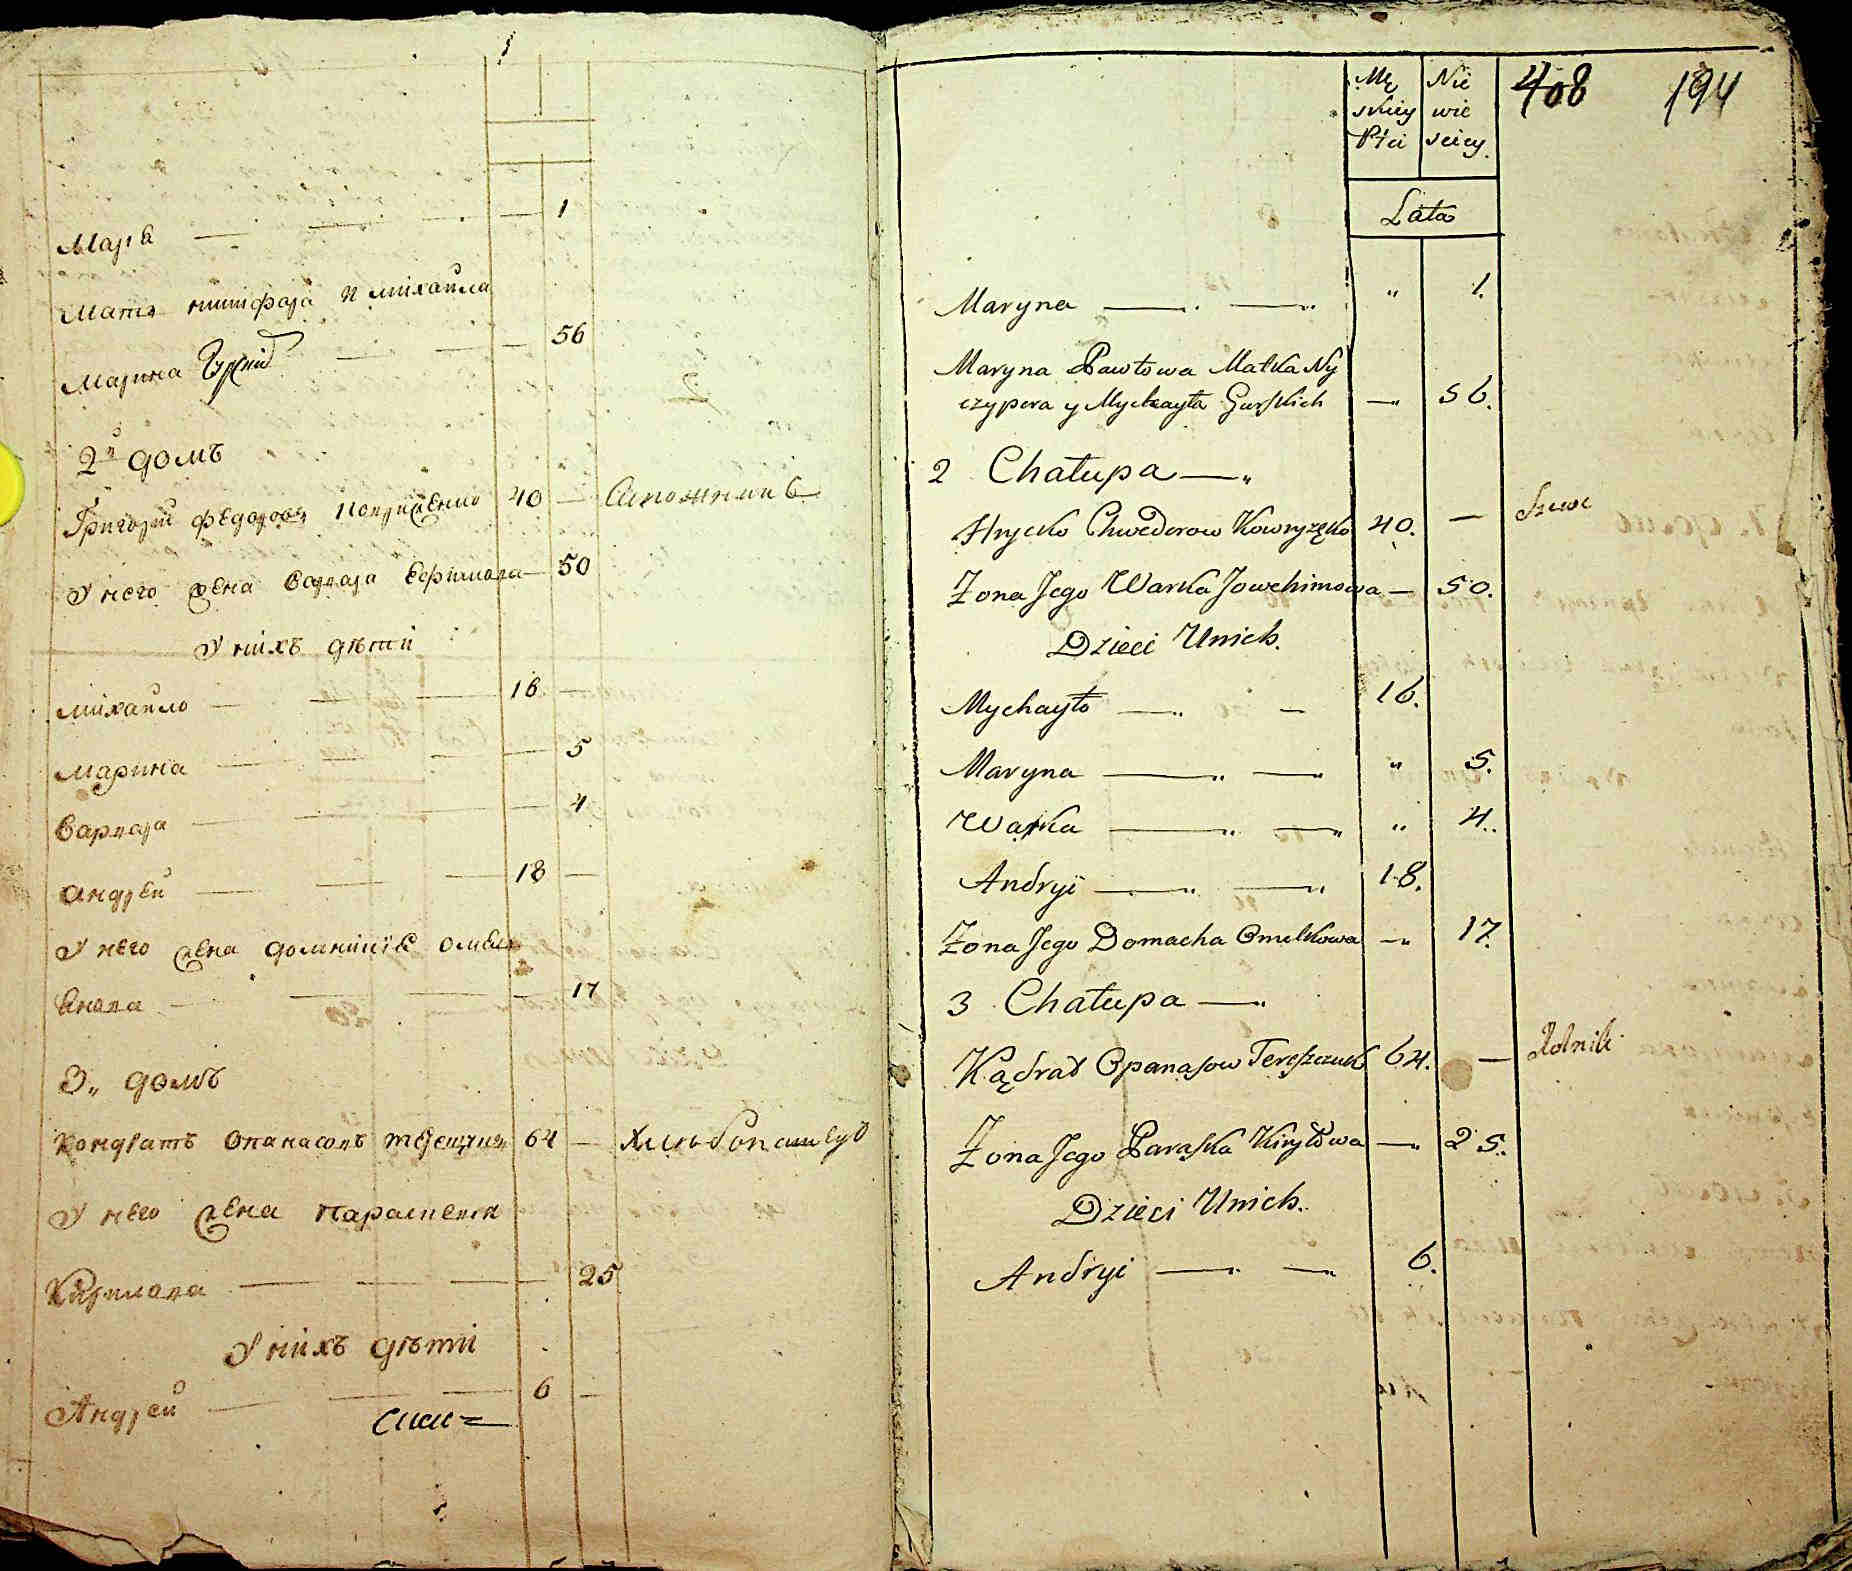 1
Марѣа 1
Мать никифора и михаила
Марина Гурски 56
2й домъ
Григорїй Федоровъ Коврисѣнко 40 — Сапожникъ
У него жена варвара Ефимова — 50
У нихъ дѣти
михаило 16 —
марина 5
варвара 4
андрей 18 —
У него жена домникїѣ омелѧ
нова 17
3„ домъ
кондратъ опанасовъ терещукъ 64 — хлѣбопашецъ
У него жена парасковѧ
Кирилова 25
У нихъ дѣти
Андрей 6 —
Męskiey Płci Niewieściey 408 194
Lata
Maryna — „ 1.
Maryna Pawłowa Matka Ny
czypora y Mychayła Gurskich — 56.
2 Chałupa —
Hrycko Chwedorow Kowryżęko 40. — Szewc
Żona Jego Warka Jowchimowa — 50.
Dzieci Unich.
Mychayło — 16.
Maryna — „ 5.
Warka — „ 4.
Andryi — 18.
Żona Jego Domacha Omelkowa — 17.
3 Chałupa —
Kądrat Opanasow Tereszczuk 64. — Rolnik
Żona Jego Paraska Kiryłowa — 25.
Dzieci Unich.
Andryi — 6.